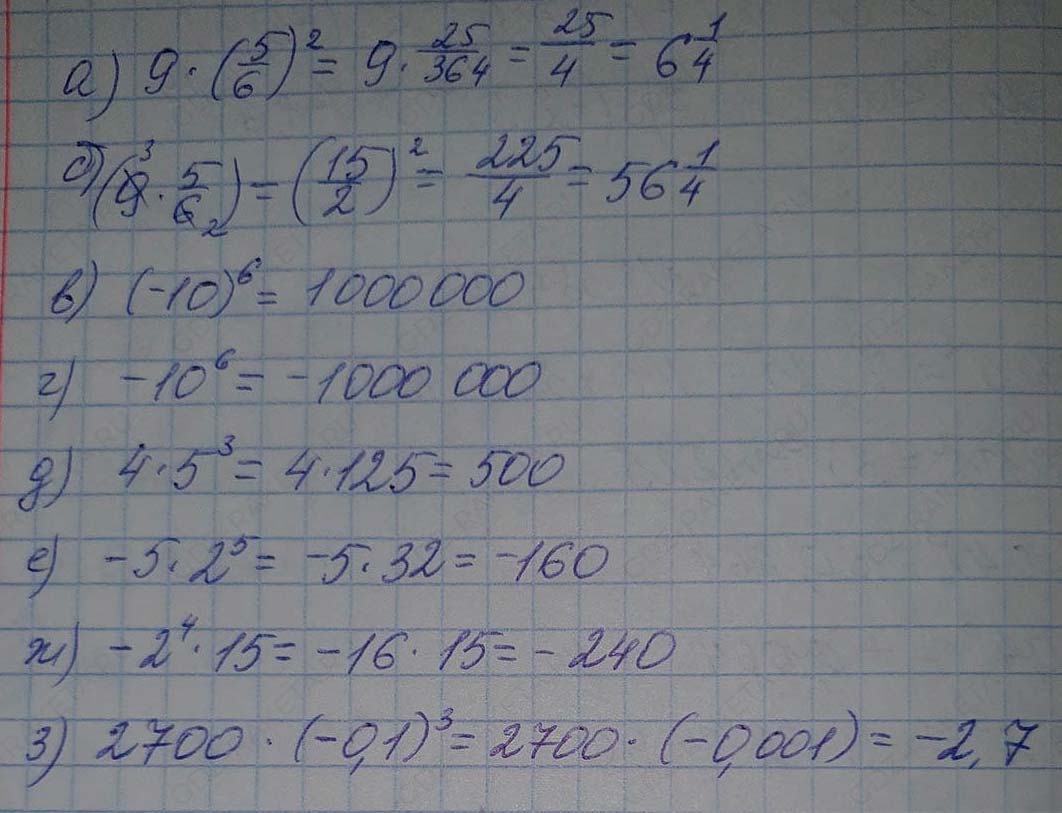 а) 9 · (5/6)² = 9 · 25/36 4 = 25/4 = 6 1/4
б) (9 3 · 5/6 2) = (15/2)² = 225/4 = 56 1/4
в) (-10)⁶ = 1000 000
г) -10⁶ = -1000 000
д) 4 · 5³ = 4 · 125 = 500
е) -5 · 2⁵ = -5 · 32 = -160
ж) -2⁴ · 15 = -16 · 15 = -240
з) 2700 · (-0,1)³ = 2700 · (-0,001) = -2,7